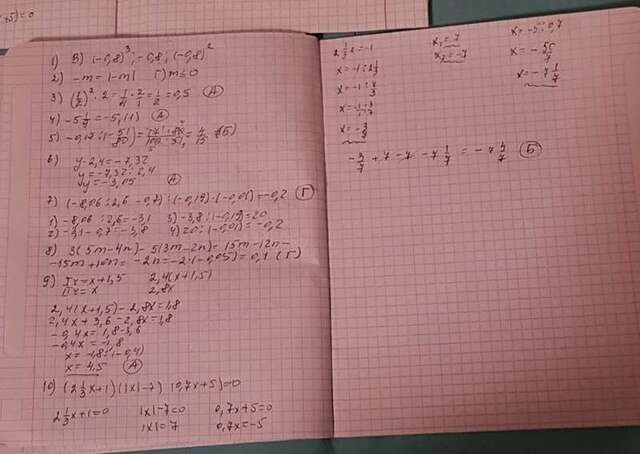 +5)=0
1) В) (-0,8)³; -0,8; (-0,8)²
2) -m = |-m| Г) m ≤ 0
3) (1/2)² · 2 = 1/4 · 2/1 = 1/2 = 0,5 А
4) -5 1/9 = -5,(1) А
5) -0,17 : (-51/80) = = 4/15 (Б)
6) y · 2,4 = -7,32
y = -7,32 : 2,4
y = -3,05 А
7) (-8,06 : 2,6 - 0,7) : (-0,19) · (-0,01) = -0,2 Г
1) -8,06 : 2,6 = -3,1 3) -3,8 : (-0,19) = 20
2) -3,1 - 0,7 = -3,8 4) 20 · (-0,01) = -0,2
8) 3(5m - 4n) - 5(3m - 2n) = 15m - 12n -
-15m + 10n = -2n = -2 · (-0,05) = 0,1 (Г)
9) = x + 1,5 2,4(x + 1,5)
= x 2,8x
2,4(x + 1,5) - 2,8x = 1,8
2,4x + 3,6 - 2,8x = 1,8
-0,4x = 1,8 - 3,6
-0,4x = -1,8
x = -1,8 : (-0,4)
x = 4,5 А
10) (2 1/3 x + 1)(|x| - 7)(0,7x + 5) = 0
2 1/3 x + 1 = 0 |x| - 7 = 0 0,7x + 5 = 0
|x| = 7 0,7x = -5
2 1/3 x = -1 x₁ = 7 x = -5 : 0,7
x = -1 : 2 1/3 x₂ = -7 x = -50/7
x = -1 : 7/3 x = -7 1/7
x = -1 · 3/7
x = -3/7
-3/7 + 7 - 7 - 7 1/7 = -7 4/7 Б